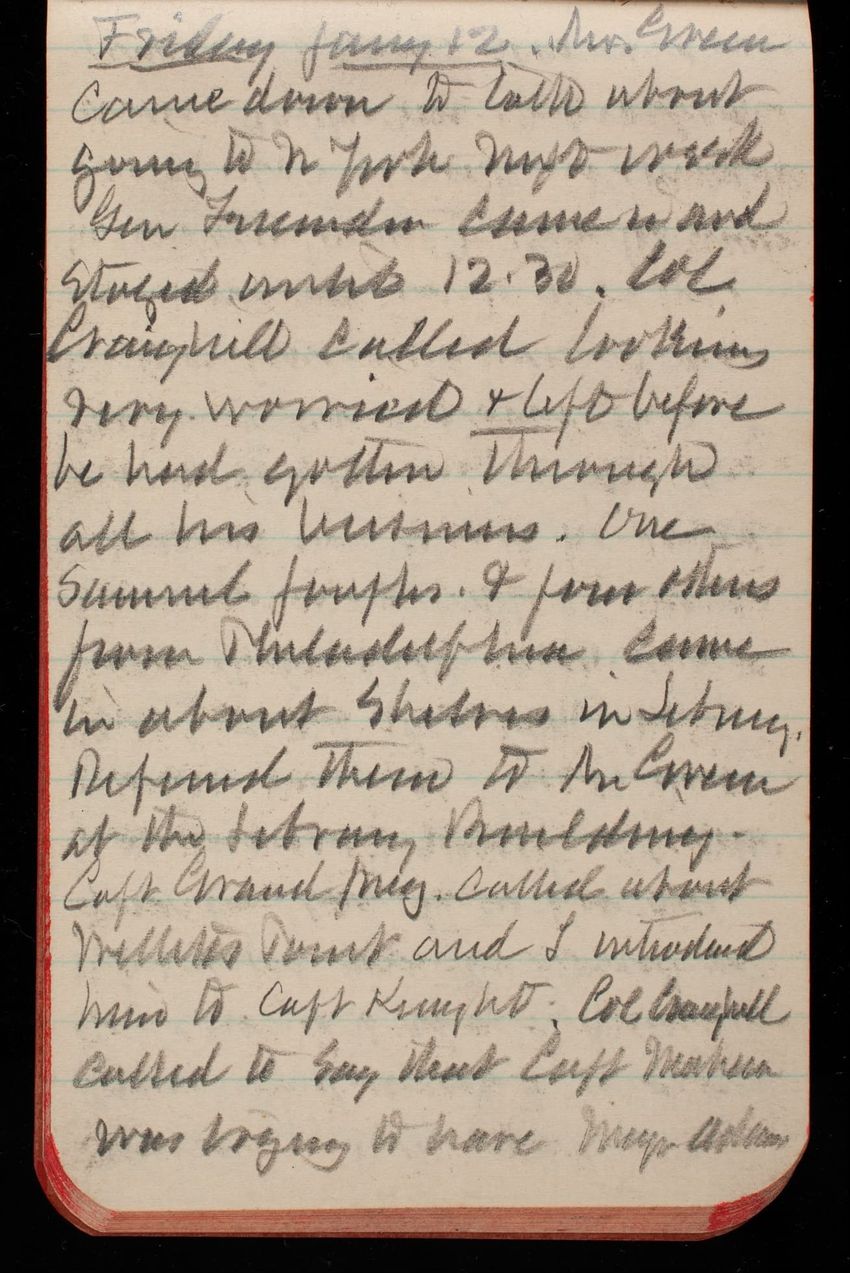 Friday Jany 12. Mr. Green
came down to talk about
going to N York next week
Gen came in and
stayed until 12.30. Col
Craighill called looking
very worried & left before
he had gotten through
all his business. One
Samuel & four others
from Philadelphia came
in about Shelves in Library.
Referred them to Mr Green
at the Library Building.
Capt called about
Willetts Point and I introduced
him to Capt Knight. Col Craighill
called to say that Capt Mahan
was trying to have Majr Adams